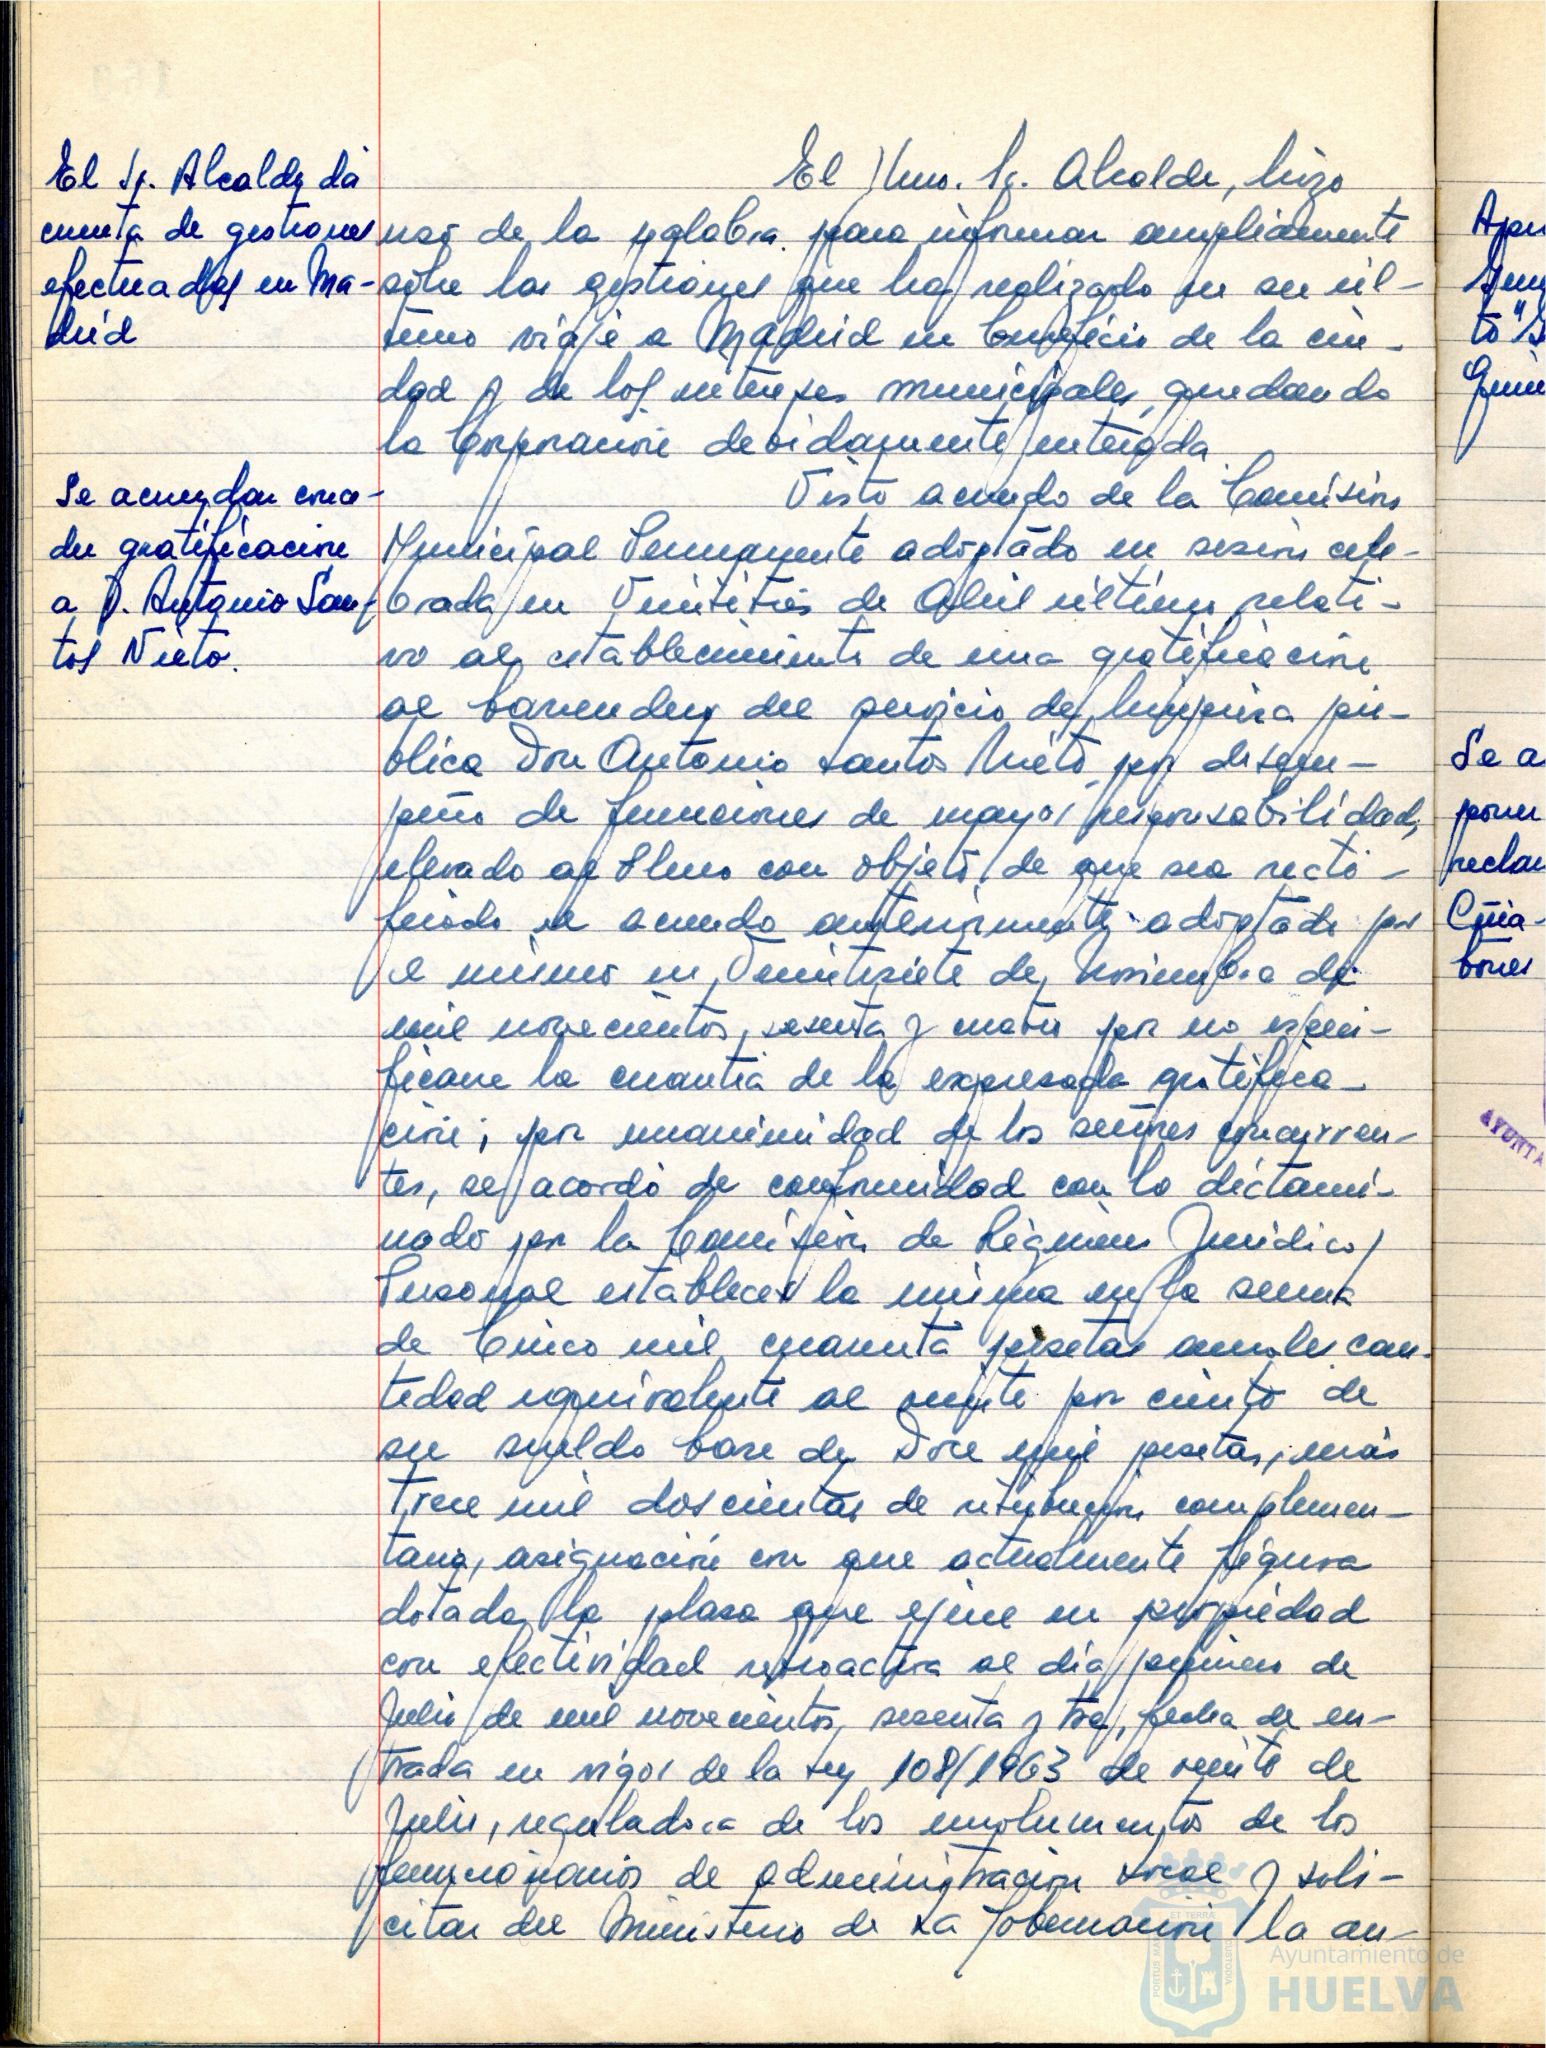 El Sr. Alcalde dá
cuenta de gestiones
efectuadas en Ma-
drid
El Ilmo. Sr. Alcalde, hizo
uso de la palabra para informar ampliamente
sobre las gestiones que ha realizado en su úl-
timo viaje a Madrid en beneficio de la ciu-
dad y de los intereses municipales, quedando
la Corporación debidamente enterada.
Se acuerdan conce-
der gratificación
a D. Antonio San-
tos Nieto.
Visto acuerdo de la Comisión
Municipal Permanente adoptado en sesión cele-
brada en Veintitrés de Abril último, relati-
vo al establecimiento de una gratificación
al barrendero del servicio de limpieza pú-
blica Don Antonio Santos Nieto, por desem-
peño de funciones de mayor responsabilidad,
elevado al Pleno con objeto de que sea recti-
ficado el acuerdo anteriormente adoptado por
el mismo en Veintisiete de Noviembre de
mil novecientos sesenta y cuatro por no especi-
ficarse la cuantía de la expresada gratifica-
ción; por unanimidad de los señores concurren-
tes, se acordó de conformidad con lo dictami-
nado por la Comisión de Régimen Jurídico y
Personal establecer la misma en la suma
de Cinco mil cuarenta pesetas anuales can-
tidad equivalente al veinte por ciento de
su sueldo base de Doce mil pesetas, más
Trece mil doscientas de retribución complemen-
taria, asignación con que actualmente figura
dotada la plaza que ejerce en propiedad
con efectividad retroactiva al día primero de
Julio de mil novecientos sesenta y tres, fecha de en-
trada en vigor de la Ley 108/1963 de veinte de
Julio, reguladora de los emolumentos de los
funcionarios de administración Local y soli-
citar del Ministerio de La Gobernación la au-
Se a
poner
reclam
Cúia-
bones
AYUNTA
ET TERRA
PORTUS MARIS
CUSTODIA
Ayuntamiento de
HUELVA